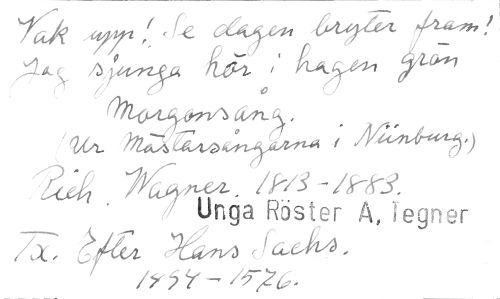 Vak upp! Se dagen bryter fram!
Jag sjunga hör i hagen grön
Morgonsång.
(Ur Mästarsångarna i Nünburg.)
Rich. Wagner. 1813-1883.
Unga Röster A. Tegner
Tx. Efter Hans Sachs.
1494-1576.